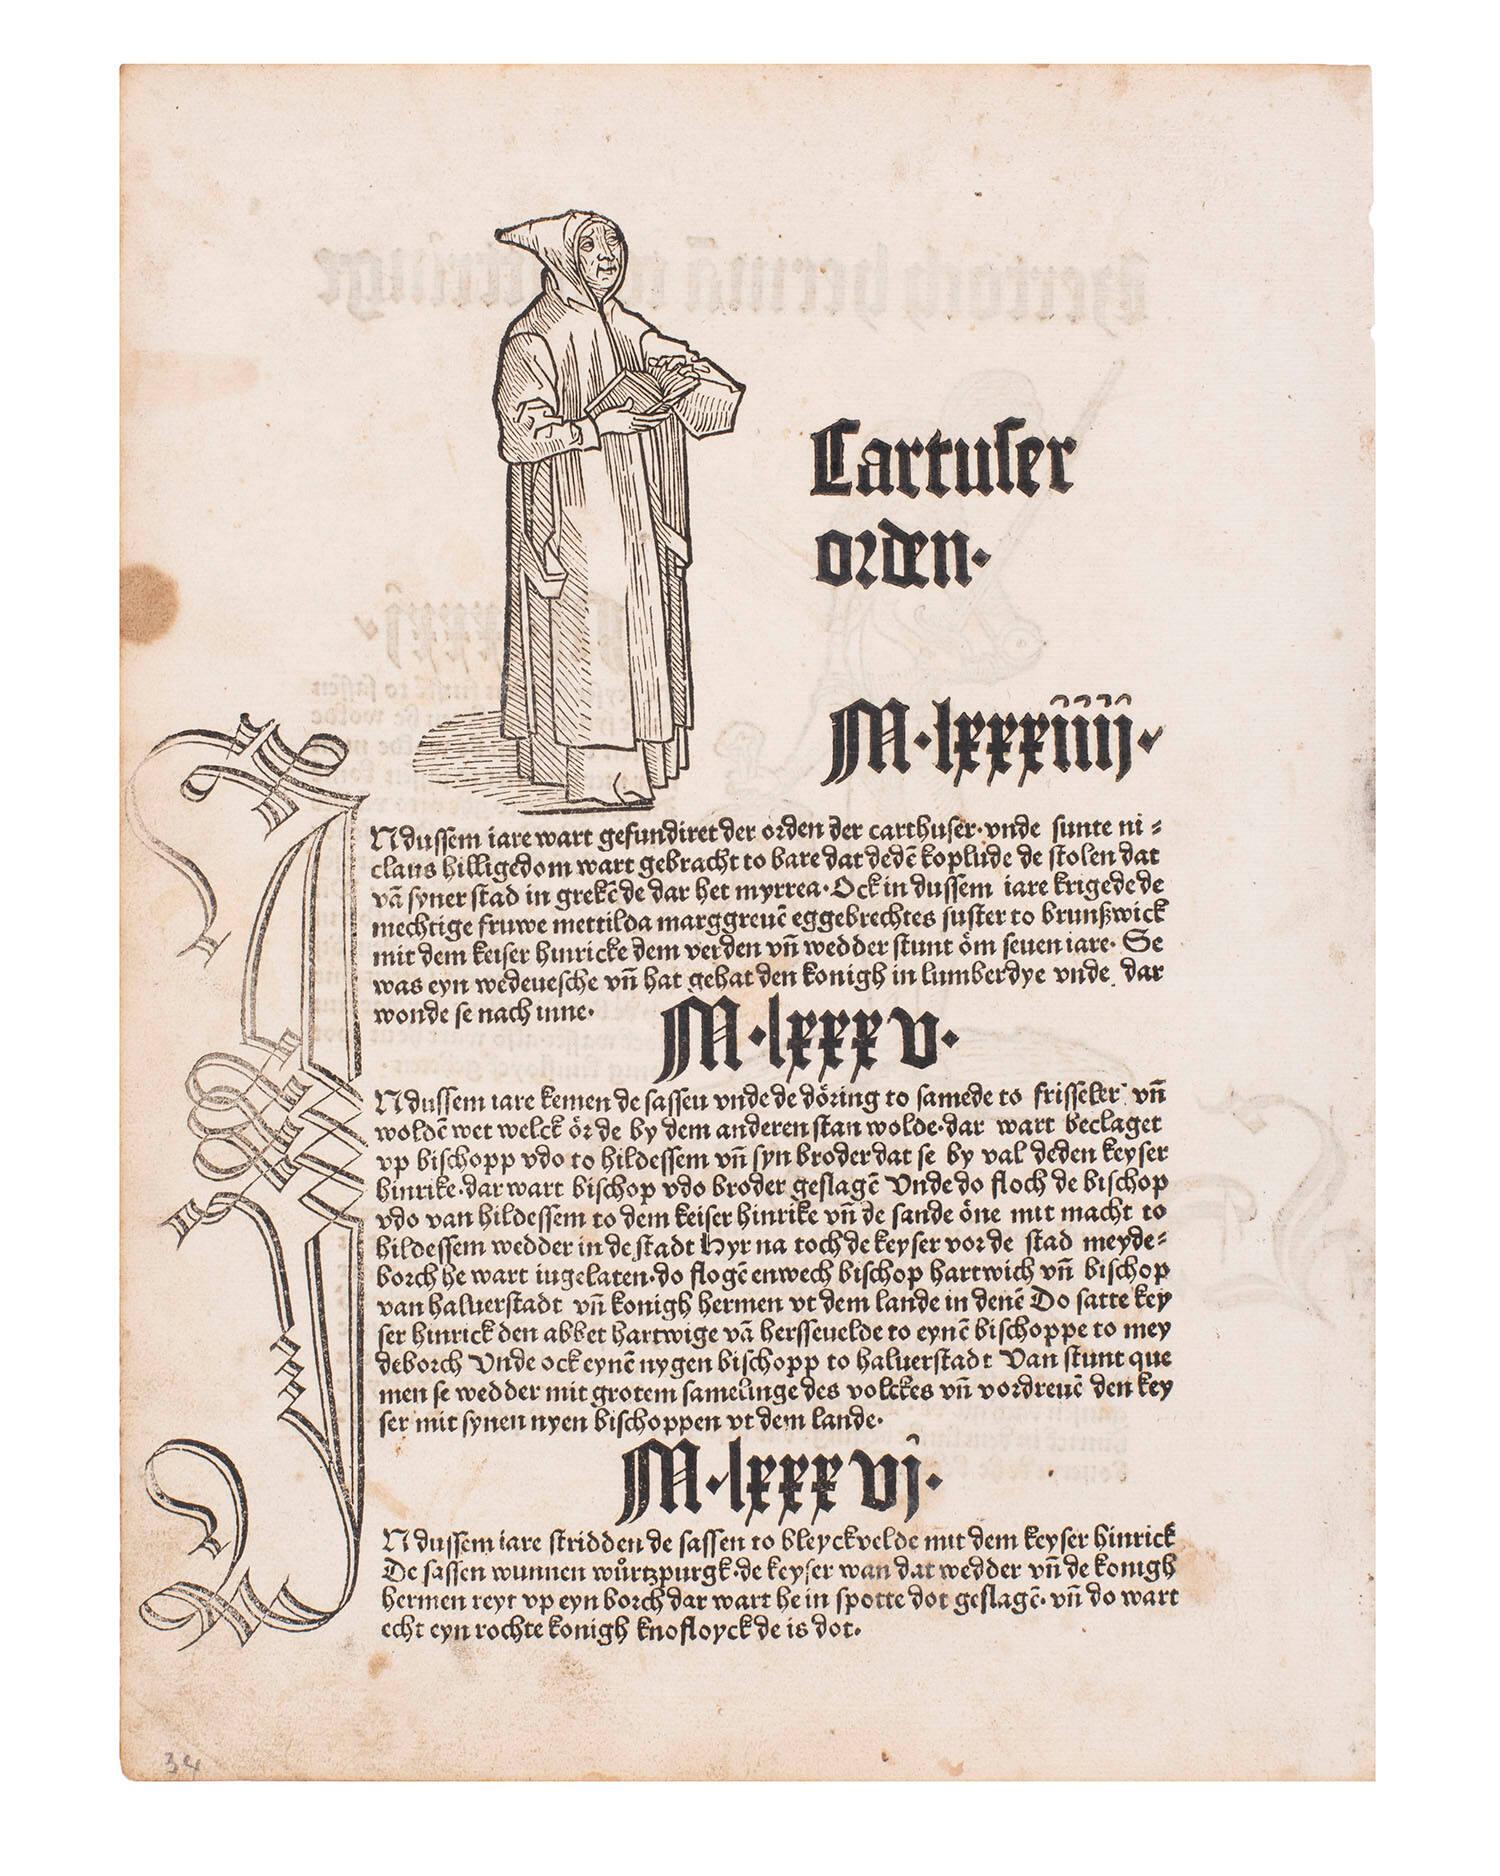 Cartuser
orden·
M·lxxxiiij·
N dussem iare wart gefundiret der orden der carthuser·vnde sunte ni⸗
claus hilligedom wart gebracht to bare dat dedē koplude de stolen dat
vā syner stad in grekēde dar het myrrea·Ock in dussem iare krigede de
mechtige fruwe mettilda marggreuē eggebrechtes suster to brunßwick
mit dem keiser hinricke dem verden vn̄ wedder stunt öm seuen iare· Se
was eyn wedeuesche vn̄ hat gehat den konigh in lumberdye vnde dar
wonde se nach inne·
M·lxxxv·
N dussem iare kemen de sassen vnde de döring to samede to frisseler vn̄
woldē wet welck ör de by dem anderen stan wolde·dar wart beclaget
vp bischopp vdo to hildessem vn̄ syn broder dat se by val deden keyser
hinrike·dar wart bischop vdo broder geslagē Vnde do floch de bischop
vdo van hildessem to dem keiser hinrike vn̄ de sande öne mit macht to
hildessem wedder in de stadt Hyr na toch de keyser vor de stad meyde⸗
borch he wart ingelaten·do flogē enwech bischop hartwich vn̄ bischop
van haluerstadt vn̄ konigh hermen vt dem lande in denē Do satte key
ser hinrick den abbet hartwige vā hersseuelde to eynē bischoppe to mey
deborch Vnde ock eynē nygen bischopp to haluerstadt Van stunt que
men se wedder mit grotem samelinge des volckes vn̄ vordreuē den key
ser mit synen nyen bischoppen vt dem lande·
M·lxxxvj·
N dussem iare stridden de sassen to bleyckvelde mit dem keyser hinrick
De sassen wunnen wůrtzpurgk·de keyser wan dat wedder vn̄ de konigh
hermen reyt vp eyn borch dar wart he in spotte dot geslagē·vn̄ do wart
echt eyn rochte konigh knofloyck de is dot·
34